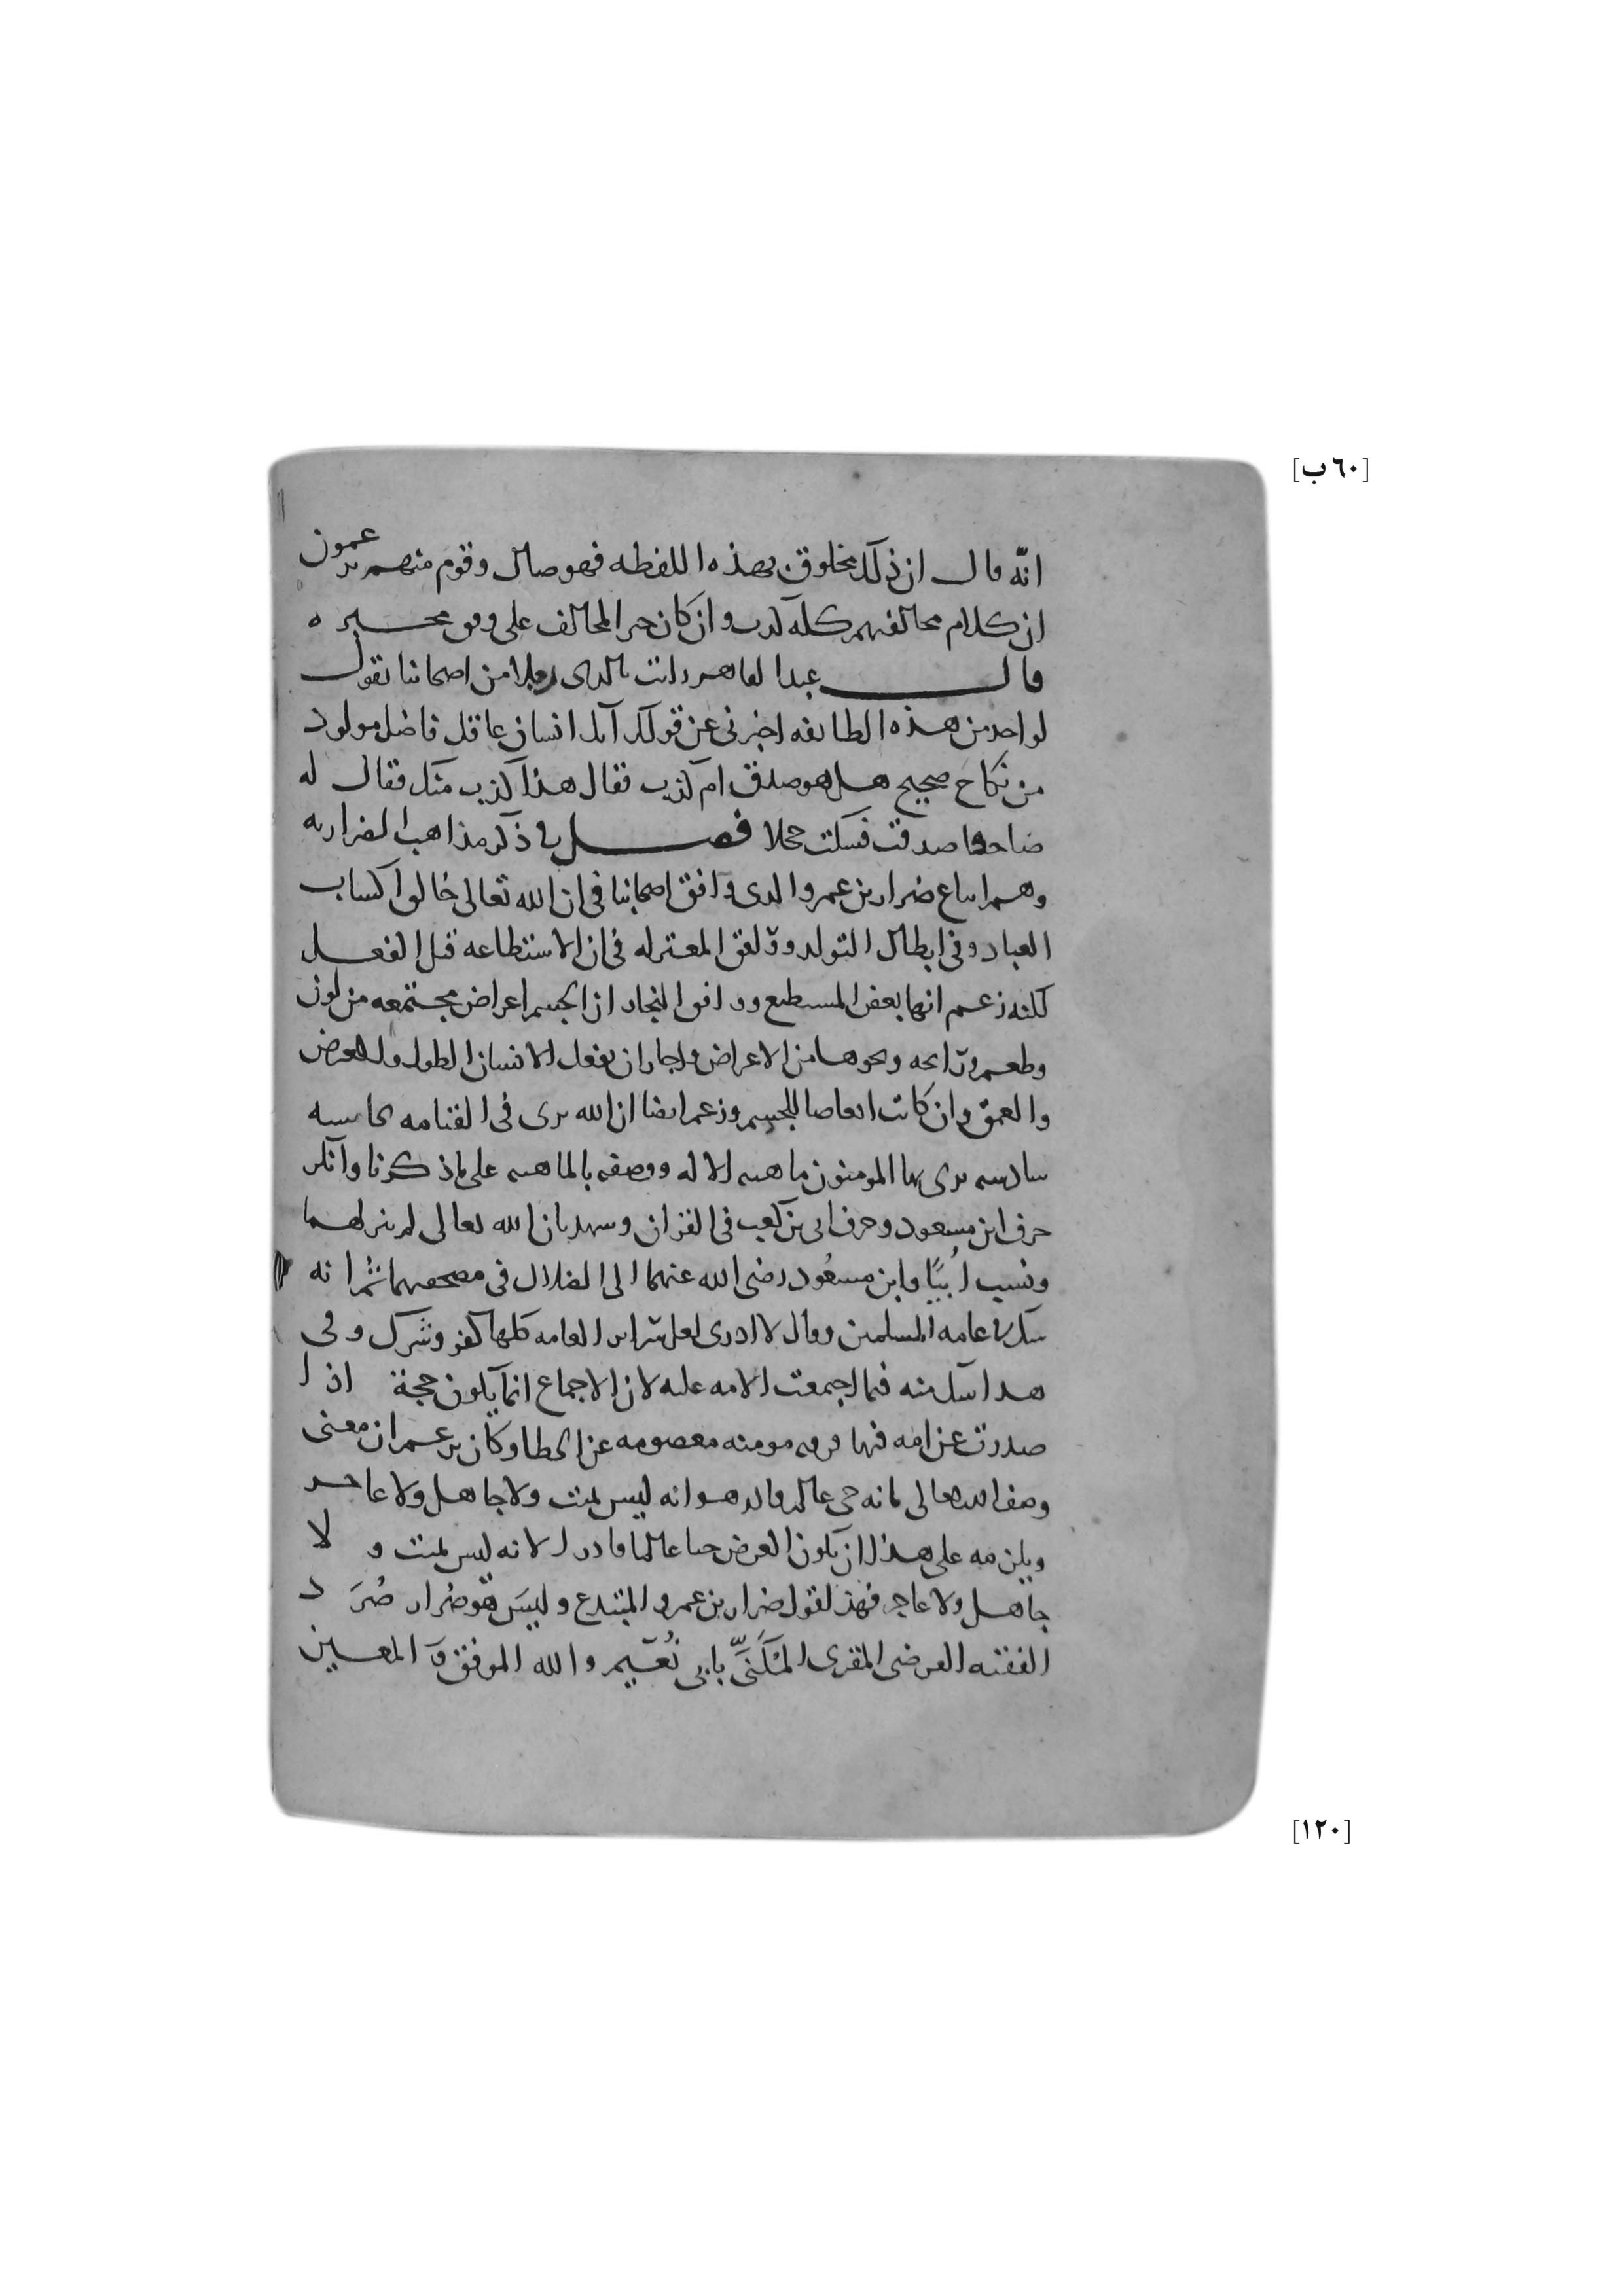 [٦٠ ب]
انه قال ان ذلك مخلوق بهذه اللفظه فهو ضال وقوم منهم يزعمون
ان كلام مخالفهم كله كذب وان كان خبر المخالف على وفق مخبره
قال عبد القاهر رايت بالري رجلا من اصحابنا يقول
لواحد من هذه الطايفه اخبرنى عن قولك انك انسان عاقل فاضل مولود
من نكاح صحيح هل هو صدق ام كذب فقال هذا كذب منك فقال له
صاحبنا صدقت فسكت خجلا فصل فى ذكر مذاهب الضراريه
وهم اتباع ضرار بن عمرو الذى وافق اصحابنا فى ان الله تعالى خالق اكساب
العباد وفى ابطال التولد ووافق المعتزله فى ان الاستطاعه قبل الفعل
لكنه زعم انها بعض المستطيع ووافق النجار ان الجسم اعراض مجتمعه من لون
وطعم ورائحه ونحوها من الاعراض واجاز ان يفعل الانسان الطول والعرض
والعمق وان كانت ابعاضا للجسم وزعم ايضا ان الله يرى فى القيامه بحاسه
سادسه يرى بها المومنون ماهيه الاله ووصفه بالماهيه على ما ذكرنا وانكر
حرف ابن مسعود وحرف ابى بن كعب فى القران وشهد بان الله تعالى لم ينزلهما
ونسب اُبيًّا وابن مسعُود رضى الله عنهما الى الضلال فى مصحفيهما ثم انه
شك فى عامه المسلمين وقال لا ادرى لعل سراير العامه كلها كفر وشرك وفى
هذا شك منه فيما اجمعت الامه عليه لان الاجماع انما يكون حجة اذا
صدرت عن امه فيها فرقه مومنه معصومه عن الخطا وكان يزعم ان معنى
وصف الله تعالى بانه حى عالم قادر هو انه ليس بميت ولا جاهل ولا عاجز
ويلزمه على هذا ان يكون العرض حيا عالما قادرا لانه ليس بميت ولا
جاهل ولا عاجز فهذا قول ضرار بن عمرو المبتدع وليسَ هو ضرار صُرَد
الفقيه العرضى المقرى المُكَنَّى بابى نُعَيم والله الموفق والمعين
[١٢٠]